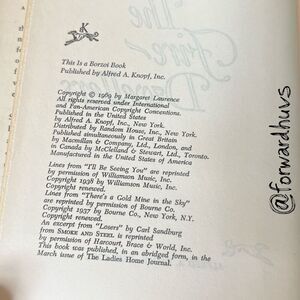 The
Fire-
Dwellers
K
This Is a Borzoi Book
Published by Alfred A. Knopf, Inc.
Copyright © 1969 by Margaret Laurence
All rights reserved under International
and Pan-American Copyright Conventions.
Published in the United States
by Alfred A. Knopf, Inc., New York.
Distributed by Random House, Inc., New York.
Published simultaneously in Great Britain
by Macmillan & Company, Ltd., London, and
in Canada by McClelland & Stewart, Ltd., Toronto.
Manufactured in the United States of America
Lines from "I'll Be Seeing You" are reprinted
by permission of Williamson Music, Inc.
Copyright 1938 by Williamson Music, Inc.
Copyright renewed.
Lines from "There's a Gold Mine in the Sky"
are reprinted by permission of Bourne Co.
Copyright 1937 by Bourne Co., New York, N.Y.
Copyright renewed.
An excerpt from "Losers" by Carl Sandburg
from SMOKE AND STEEL is reprinted
by permission of Harcourt, Brace & World, Inc.
This book was published, in an abridged form, in the
March issue of The Ladies Home Journal.
@forwardhuvs